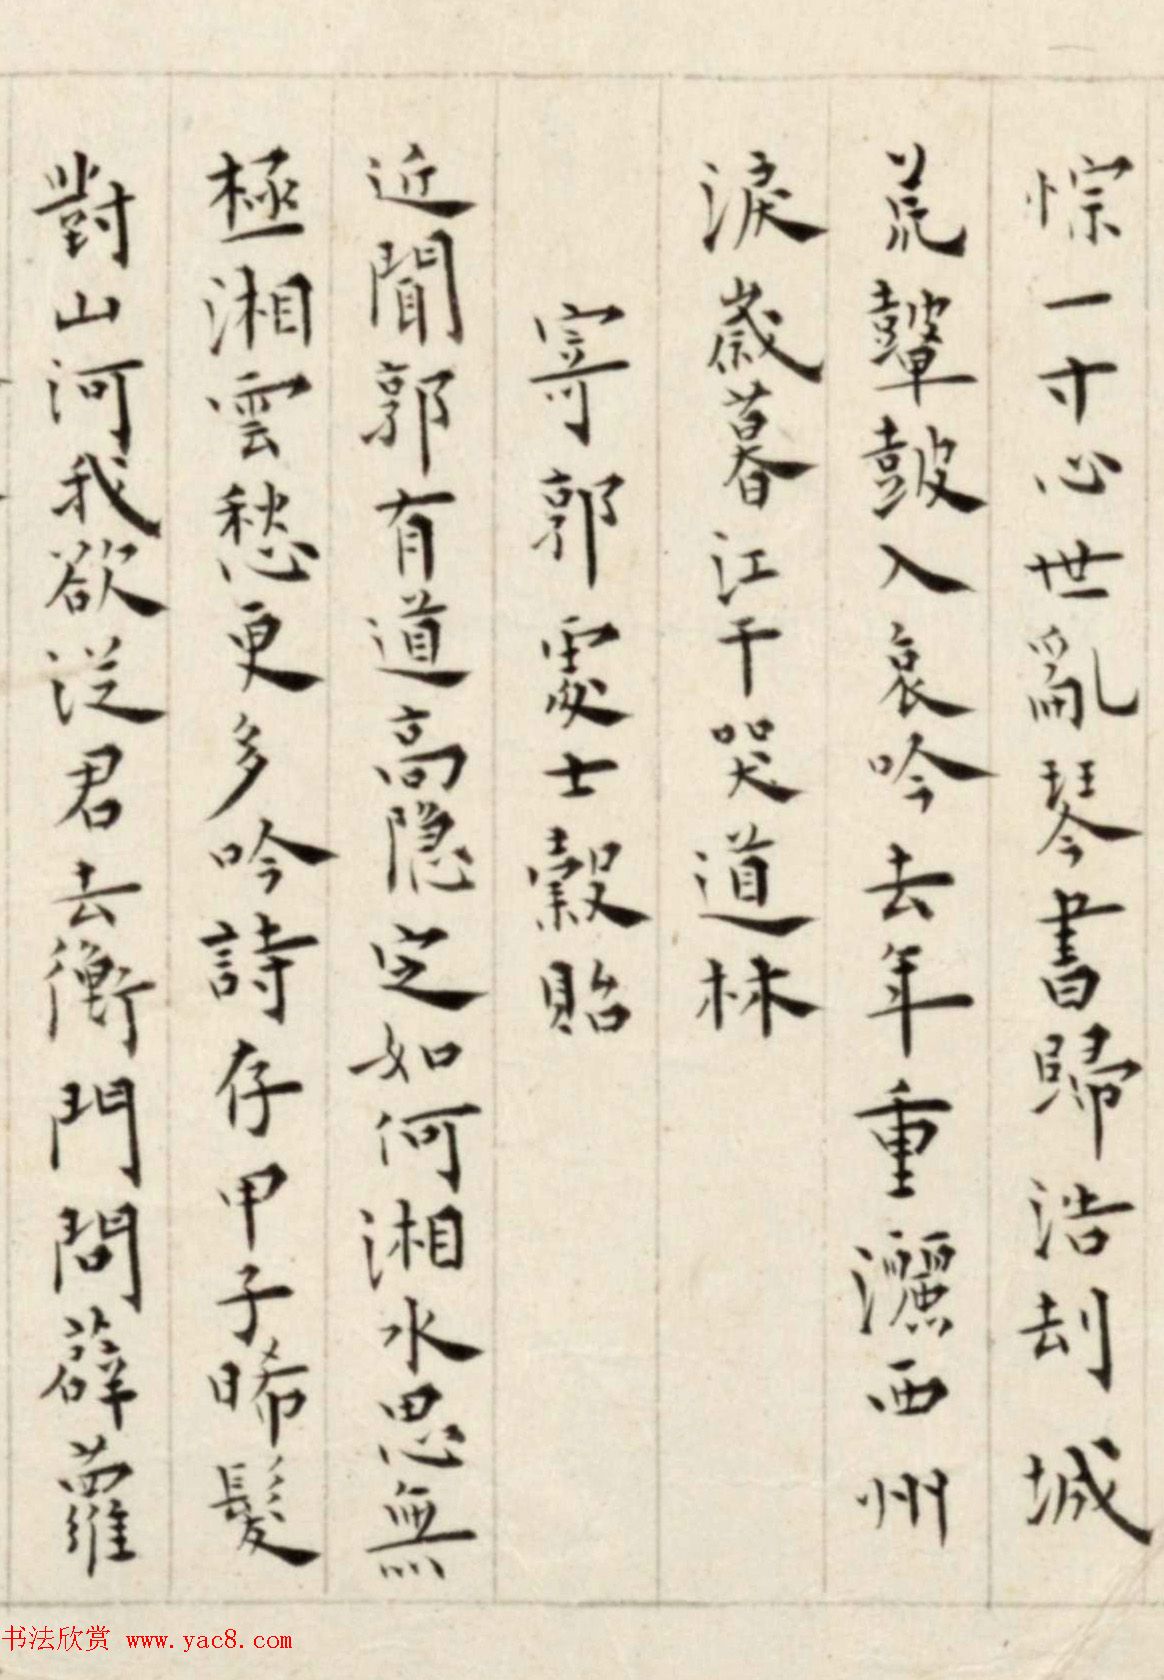 悰一寸心世亂琴書歸浩刧城
荒鼙鼓入哀吟去年重灑西州
淚歲暮江干哭道林
寄郭處士穀貽
近聞郭有道高隱定如何湘水思無
極湘雲愁更多吟詩存甲子晞髮
對山河我欲從君去衡門問薜蘿
书法欣赏 www.yac8.com